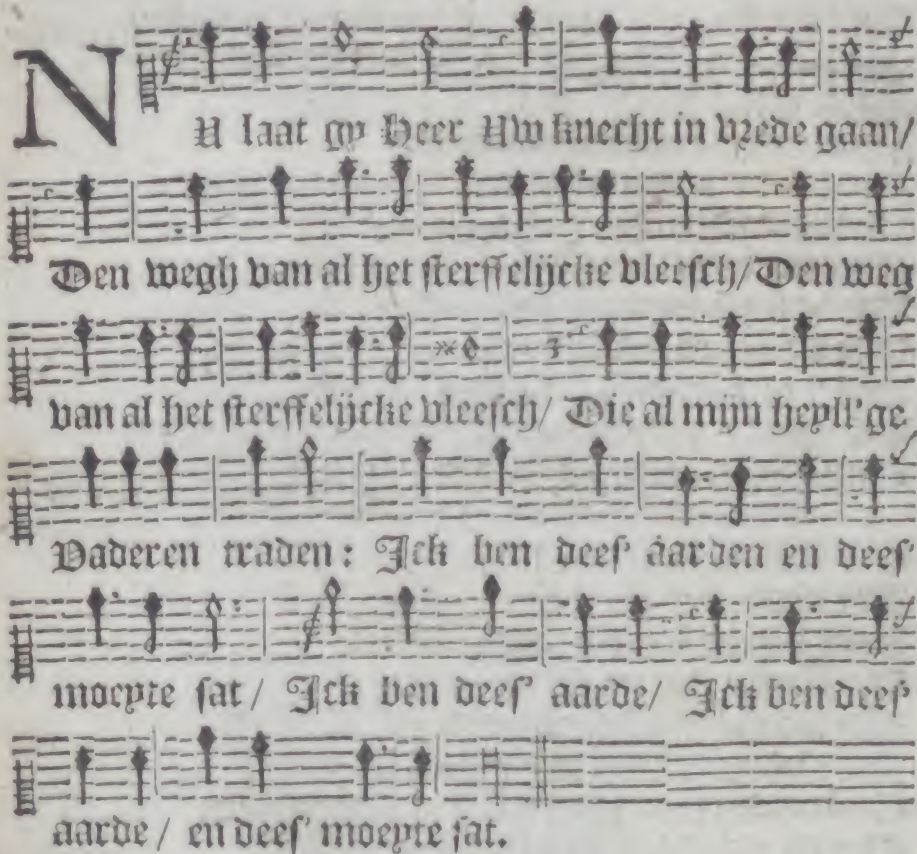 NU laat gy Heer Uw knecht in vrede gaan/
Den wegh van al het sterffelijcke vleesch/ Den weg
van al het sterffelijcke vleesch/ Die al mijn heyll' ge
Vaderen traden: Ick ben dees' aarden en dees'
moeyte sat/ Ick ben dees' aarde/ Ick ben dees'
aarde/ en dees' moeyte sat.